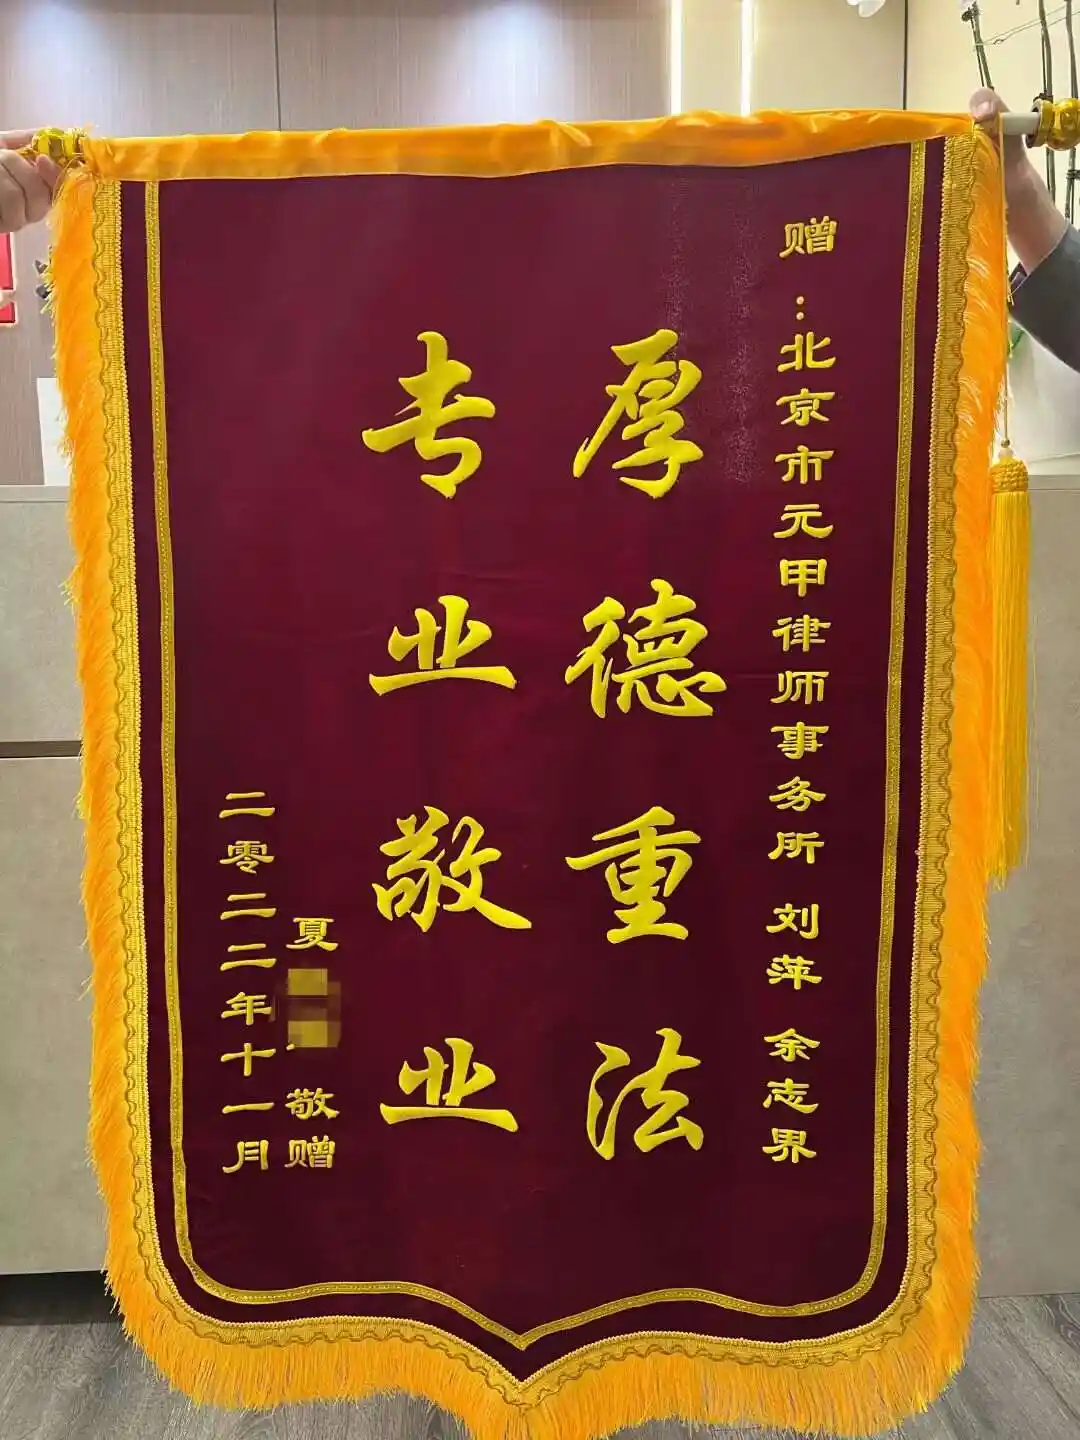 赠：北京市元甲律师事务所 刘萍 余志界
厚德重法
专业敬业
夏 敬赠
二零二二年十一月